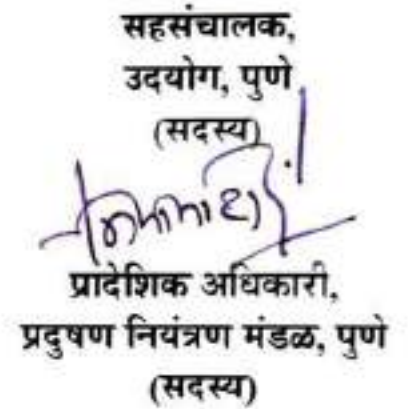 सहसंचालक,
उदयोग, पुणे
(सदस्य)
प्रादेशिक अधिकारी,
प्रदुषण नियंत्रण मंडळ, पुणे
(सदस्य)